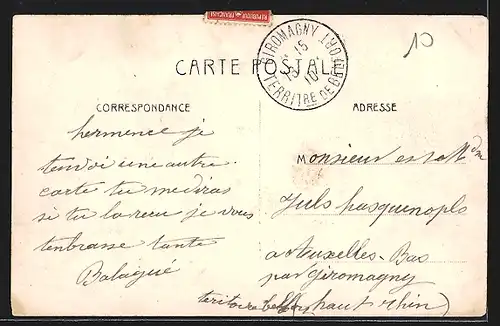 REPUBLIQUE FRANÇAISE
10
GIROMAGNY
15
13
10
TERRITRE DE BELFORT
CARTE POSTALE
CORRESPONDANCE
ADRESSE
hermence je
tenvoi une autre
carte tu me diras
si tu la recu je vous
tenbrasse tante
Balagué
Monsieur est Mdm
Juls hasquenoplo
a Auxelles-Bas
par Giromagny
teritoire (haut rhin)